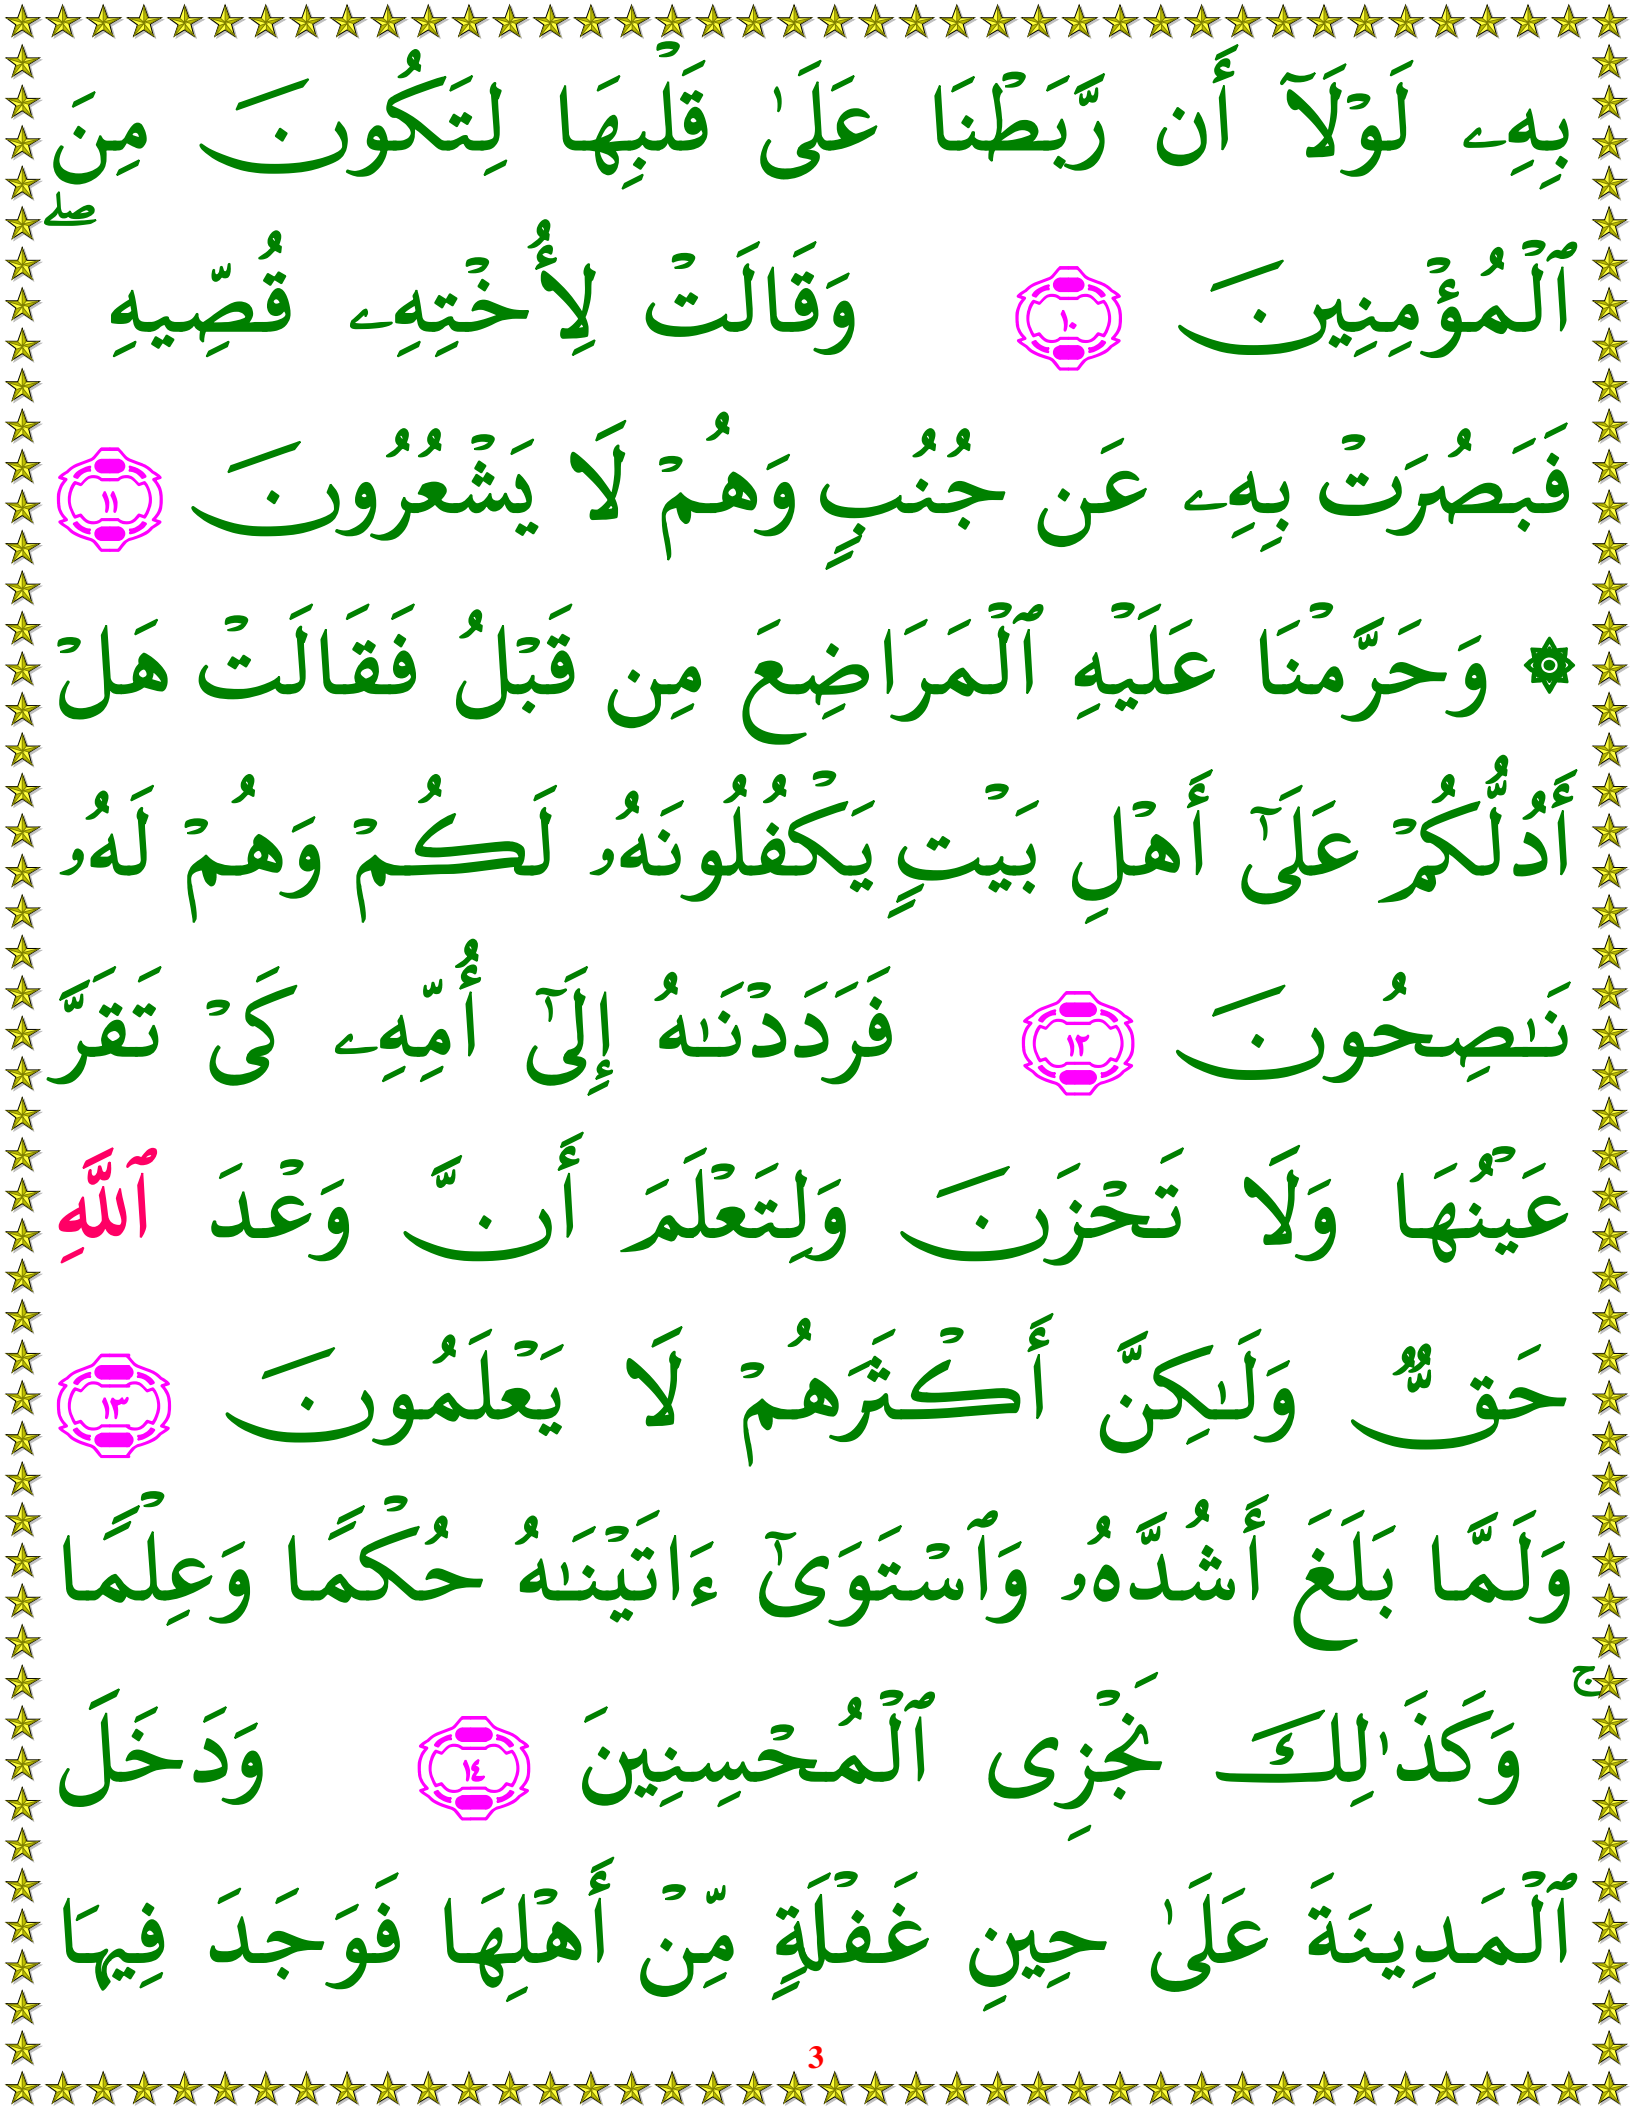 بِهِۦ لَوْلَآ أَن رَّبَطْنَا عَلَىٰ قَلْبِهَا لِتَكُونَ مِنَ
ٱلْمُؤْمِنِينَ ١٠ وَقَالَتْ لِأُخْتِهِۦ قُصِّيهِ ۖ
فَبَصُرَتْ بِهِۦ عَن جُنُبٍ وَهُمْ لَا يَشْعُرُونَ ١١
۞ وَحَرَّمْنَا عَلَيْهِ ٱلْمَرَاضِعَ مِن قَبْلُ فَقَالَتْ هَلْ
أَدُلُّكُمْ عَلَىٰٓ أَهْلِ بَيْتٍ يَكْفُلُونَهُۥ لَكُمْ وَهُمْ لَهُۥ
نَـٰصِحُونَ ١٢ فَرَدَدْنَـٰهُ إِلَىٰٓ أُمِّهِۦ كَىْ تَقَرَّ
عَيْنُهَا وَلَا تَحْزَنَ وَلِتَعْلَمَ أَنَّ وَعْدَ ٱللَّهِ
حَقٌّ وَلَـٰكِنَّ أَكْثَرَهُمْ لَا يَعْلَمُونَ ١٣
وَلَمَّا بَلَغَ أَشُدَّهُۥ وَٱسْتَوَىٰٓ ءَاتَيْنَـٰهُ حُكْمًا وَعِلْمًا
ۚ وَكَذَٰلِكَ نَجْزِى ٱلْمُحْسِنِينَ ١٤ وَدَخَلَ
ٱلْمَدِينَةَ عَلَىٰ حِينِ غَفْلَةٍ مِّنْ أَهْلِهَا فَوَجَدَ فِيهَا
3